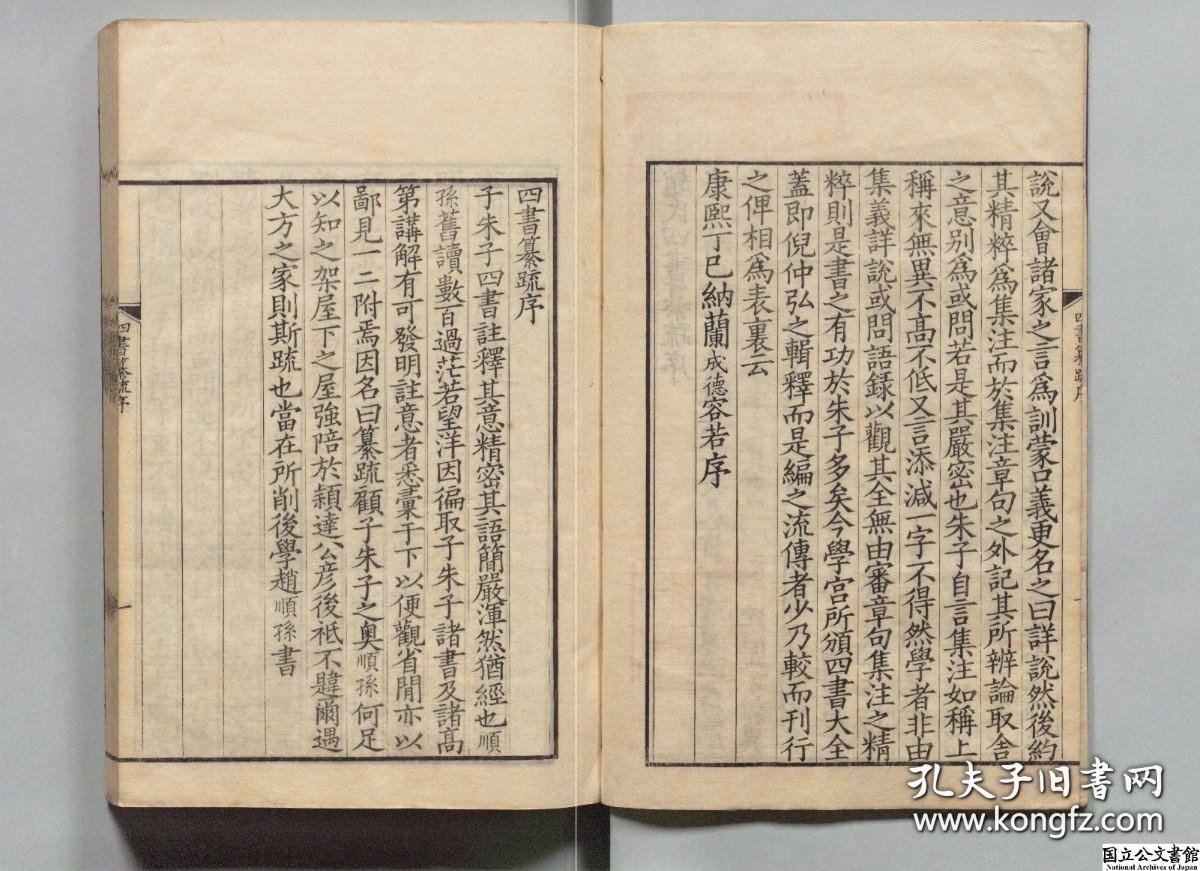 說又會諸家之言爲訓蒙口義更名之曰詳說然後約
其精粹爲集注而於集注章句之外記其所辨論取舍
之意别爲或問若是其嚴密也朱子自言集注如稱上
稱來無異不高不低又言添減一字不得然學者非由
集義詳說或問語録以觀其全無由審章句集注之精
粹則是書之有功於朱子多矣今學宫所頒四書大全
蓋即倪仲弘之輯釋而是編之流傳者少乃較而刊行
之俾相爲表裏云
康熙丁巳納蘭成德容若序
四書纂疏序
一
四書纂疏序
子朱子四書註釋其意精密其語簡嚴渾然猶經也順
孫舊讀數百過茫若望洋因徧取子朱子諸書及諸高
第講解有可發明註意者悉彚于下以便觀省閒亦以
鄙見一二附焉因名曰纂疏顧子朱子之奥順孫何足
以知之架屋下之屋強陪於穎達公彦後祇不韙爾遇
大方之家則斯疏也當在所削後學趙順孫書
四書纂疏序
一
孔夫子旧书网
www.kongfz.com
国立公文書館
National Archives of Japan